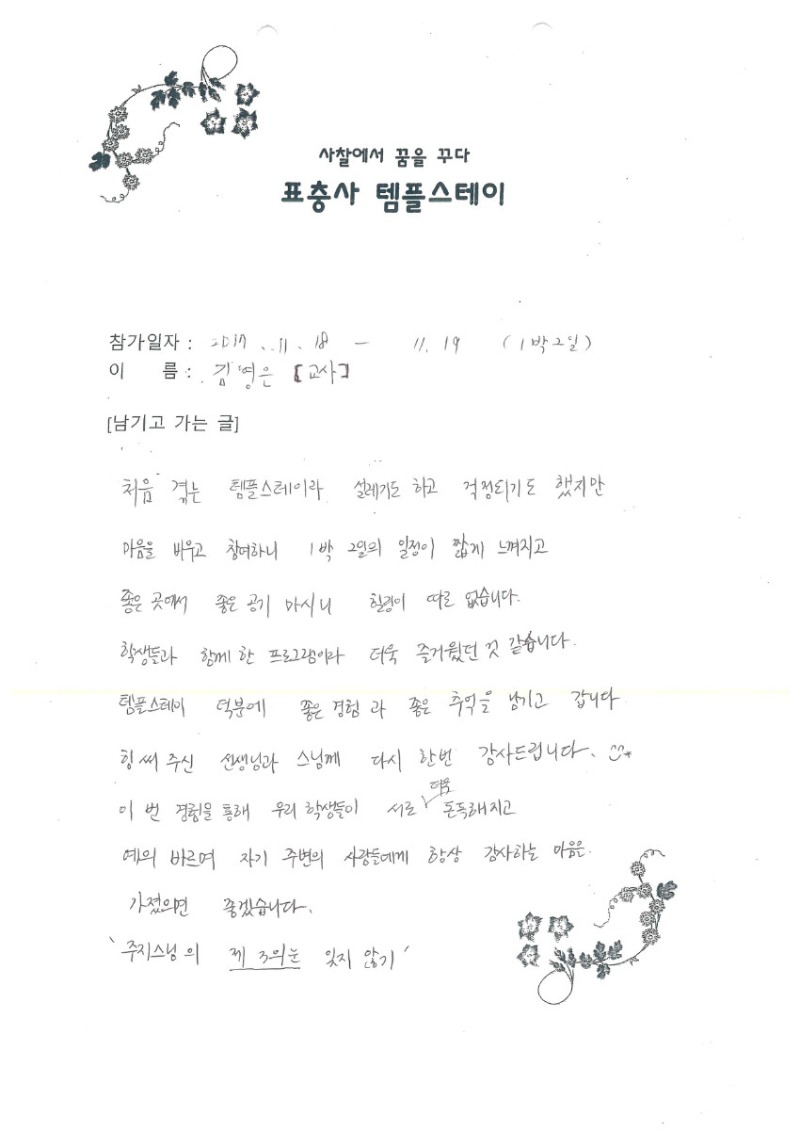 사찰에서 꿈을 꾸다
표충사 템플스테이
참가일자 : 2017. 11. 18 - 11. 19 (1박2일)
이 름 : 김영은 [교사]
[남기고 가는 글]
처음 겪는 템플스테이라 설레기도 하고 걱정되기도 했지만
마음을 비우고 참여하니 1박 2일의 일정이 짧게 느껴지고
좋은 곳에서 좋은 공기 마시니 힐링이 따로 없습니다.
학생들과 함께 한 프로그램이라 더욱 즐거웠던 것 같습니다.
템플스테이 덕분에 좋은 경험과 좋은 추억을 남기고 갑니다
힘써 주신 선생님과 스님께 다시 한번 감사드립니다.
이 번 경험을 통해 우리 학생들이 서로 더욱 돈독해지고
예의 바르며 자기 주변의 사람들에게 항상 감사하는 마음은
가졌으면 좋겠습니다.
'주지스님의 제 3의눈 잊지 않기'